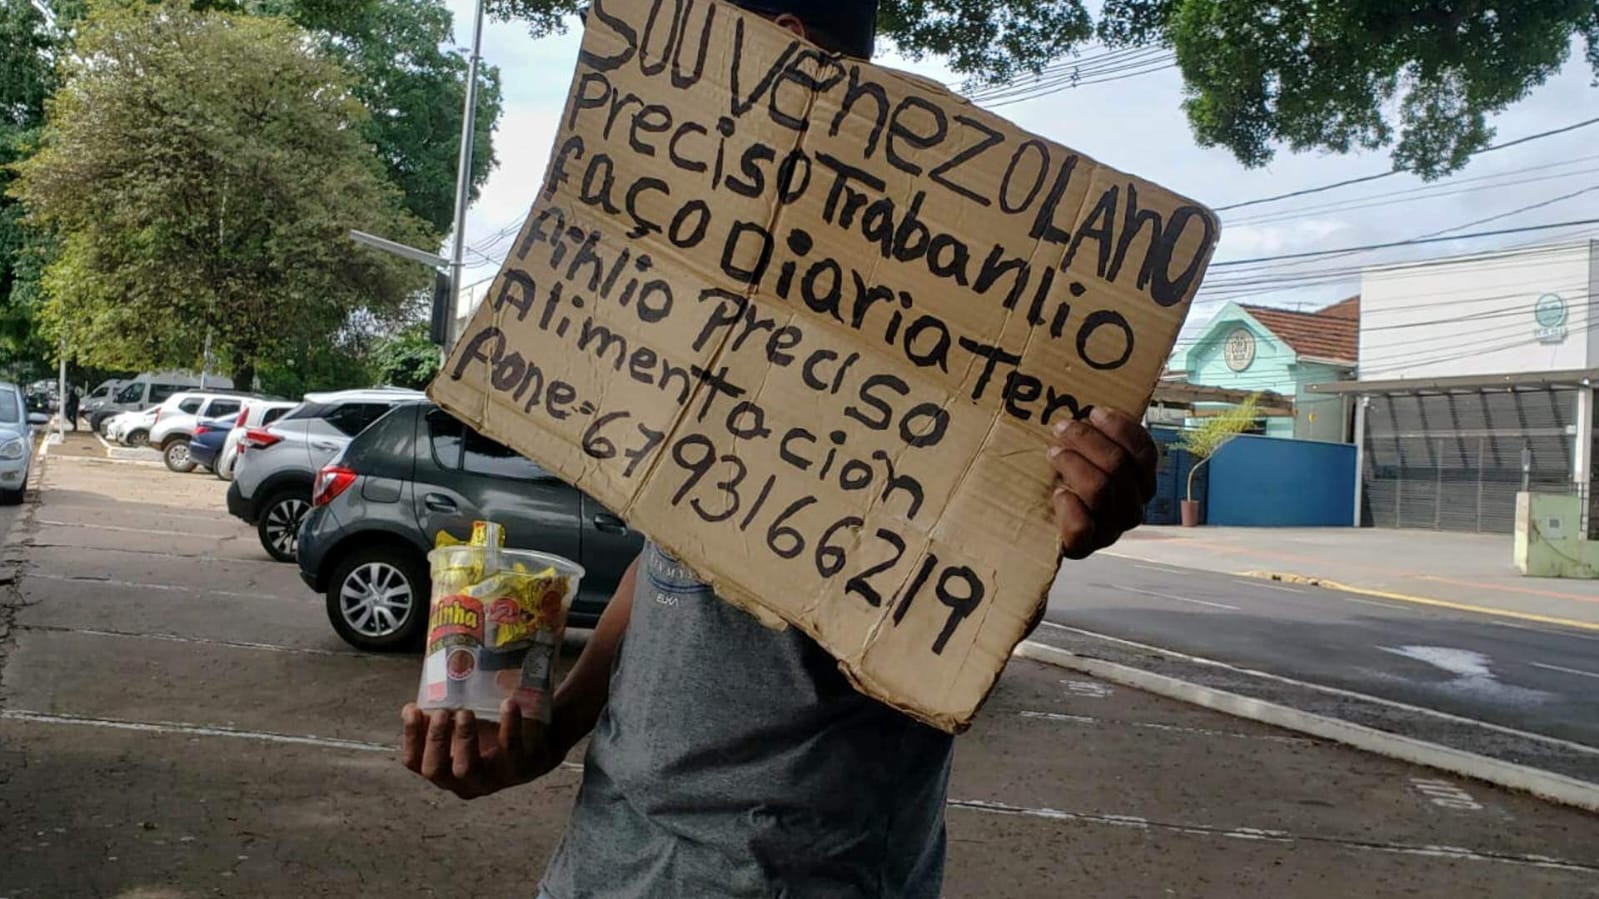 SOU VenezOLAno
Preciso Trabanlio
faço Diaria Tem
Aihlio Preciso
Alimentación
Pone=67 93166219
inha
ELKA